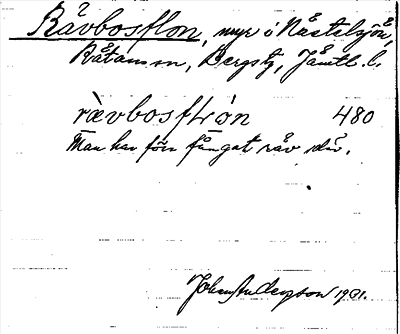 Rävbosflon, myr i Nästelsjön,
Rätans sn, Bergs tg, Jämtl. l.
rävbosflón 480
Man har förr fångat räv där.
John Anderson 1931.